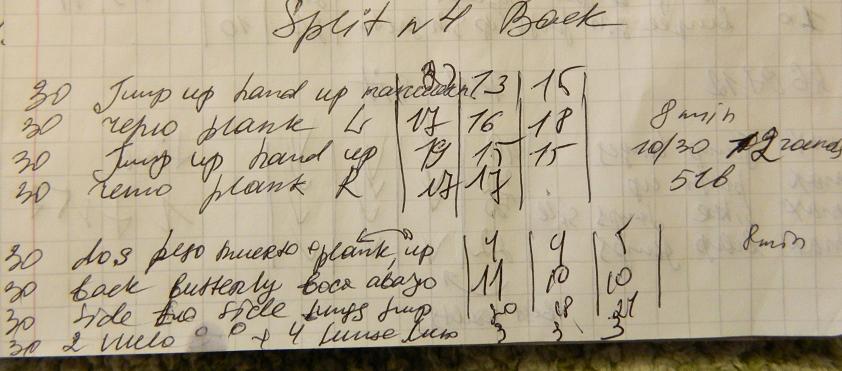 Split n 4 Back
30 Jump up hand up 13 15
30 plank L 17 16 18 8 min
30 Jump up hand up 19 15 15 10/30 2
30 plank R 17 17 51b
30 dos peso muerto + plank up 4 4 5 8 min
30 back butterfly boca abajo 11 10 10
30 side to side lungs jump 20 18 21
30 2 + 4 3 3 3